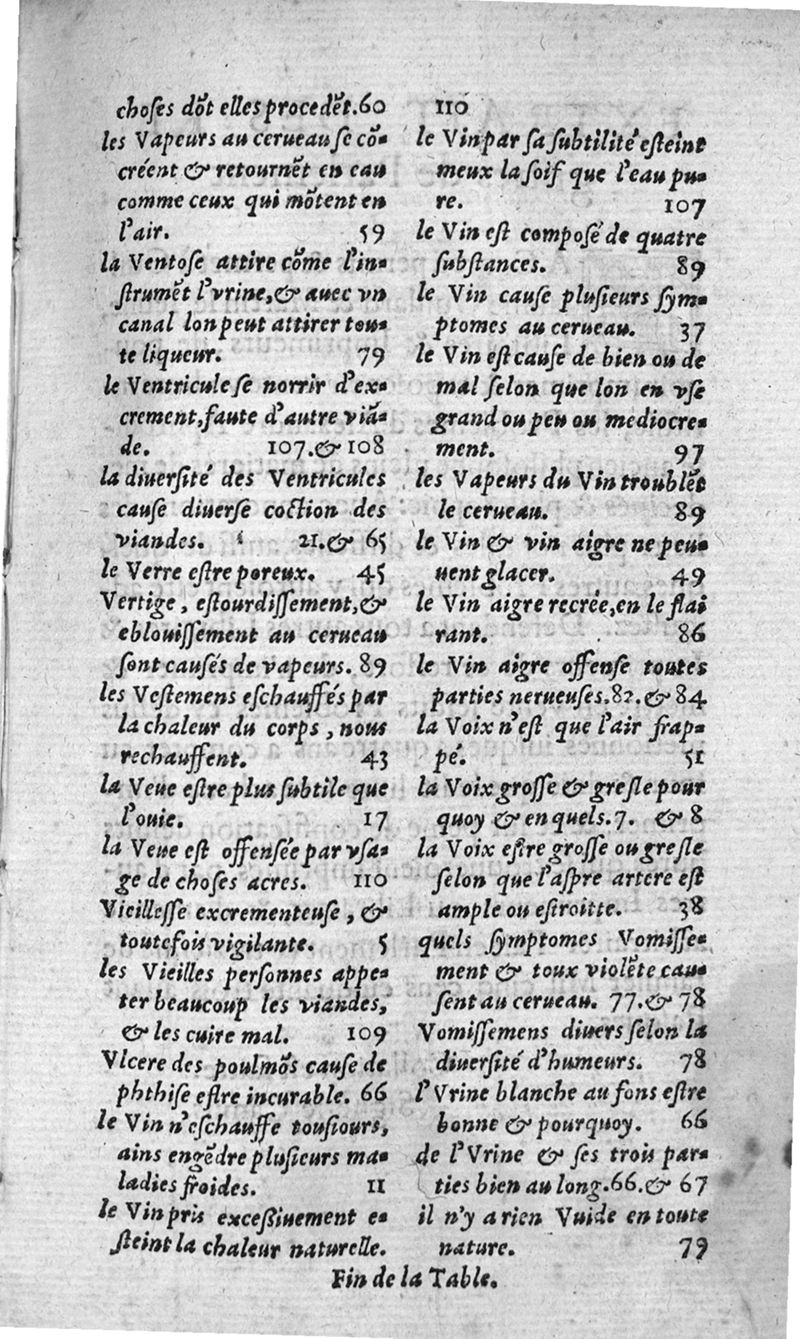 choſes dõt elles procedẽt.60
les Vapeurs au cerueau ſe cõ-
créent & retournẽt en eau
comme ceux qui mõtent en
l'air. 59
la Ventoſe attire cõme l'in-
ſtrumẽt l'vrine,& auec vn
canal lon peut attirer tou-
te liqueur. 79
le Ventricule ſe norrir d'ex-
crement,faute d'autre viã-
de. 107.& 108
la diuerſité des Ventricules
cauſe diuerſe coction des
viandes. 21.& 65
le Verre eſtre poreux. 45
Vertige, eſtourdiſſement,&
eblouiſſement au cerueau
ſont cauſés de vapeurs. 89
les Veſtemens eſchauffés par
la chaleur du corps, nous
rechauffent. 43
la Veue eſtre plus ſubtile que
l'ouie. 17
la Veue eſt offenſée par vſa-
ge de choſes acres. 110
Vieilleſſe excrementeuſe, &
toutefois vigilante. 5
les Vieilles perſonnes appe-
ter beaucoup les viandes,
& les cuire mal. 109
Vlcere des poulmõs cauſe de
phthiſe eſtre incurable. 66
le Vin n'eſchauffe touſiours,
ains engẽdre pluſieurs ma-
ladies froides. 11
le Vin pris exceßiuement e-
ſteint la chaleur naturelle.
110
le Vin par ſa ſubtilité eſteint
meux la ſoif que l'eau pu-
re. 107
le Vin eſt compoſé de quatre
ſubſtances. 89
le Vin cauſe pluſieurs ſym-
ptomes au cerueau. 37
le Vin eſt cauſe de bien ou de
mal ſelon que lon en vſe
grand ou peu ou mediocre-
ment. 97
les Vapeurs du Vin troublẽt
le cerueau. 89
le Vin & vin aigre ne peu-
uent glacer. 49
le Vin aigre recrée,en le flai
rant. 86
le Vin aigre offenſe toutes
parties nerueuſes.82.& 84
la Voix n'eſt que l'air frap-
pé. 51
la Voix groſſe & greſle pour
quoy & en quels.7. & 8
la Voix eſtre groſſe ou greſle
ſelon que l'aſpre artere eſt
ample ou eſtroitte. 38
quels ſymptomes Vomiſſe-
ment & toux violẽte cau-
ſent au cerueau. 77.& 78
Vomiſſemens diuers ſelon la
diuerſité d'humeurs. 78
l'Vrine blanche au fons eſtre
bonne & pourquoy. 66
de l'Vrine & ſes trois par-
ties bien au long.66.& 67
il n'y a rien Vuide en toute
nature. 79
Fin de la Table.